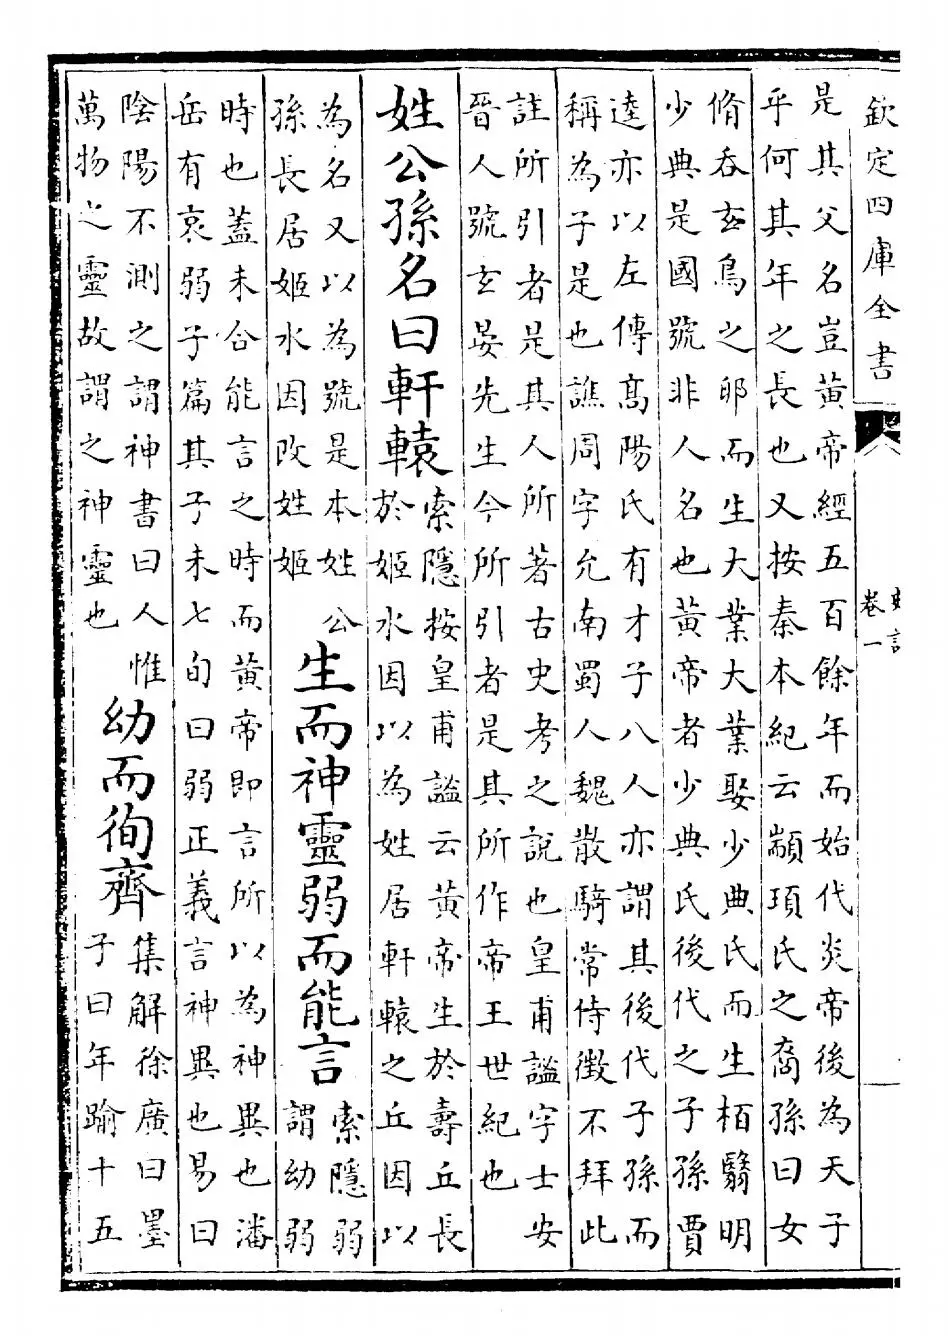 欽定四庫全書
史記
卷一
是其父名豈黃帝經五百餘年而始代炎帝後為天子
乎何其年之長也又按秦本紀云顓頊氏之裔孫曰女
脩吞玄鳥之卵而生大業大業娶少典氏而生栢翳明
少典是國號非人名也黃帝者少典氏後代之子孫賈
逵亦以左傳高陽氏有才子八人亦謂其後代子孫而
稱為子是也譙周字允南蜀人魏散騎常侍徵不拜此
註所引者是其人所著古史考之說也皇甫謐字士安
晉人號玄晏先生今所引者是其所作帝王世紀也
姓公孫名曰軒轅
索隱按皇甫謐云黃帝生於壽丘長
於姬水因以為姓居軒轅之丘因以
為名又以為號是本姓公
孫長居姬水因改姓姬
生而神靈弱而能言
索隱弱
謂幼弱
時也蓋未合能言之時而黃帝即言所以為神異也潘
岳有哀弱子篇其子未七旬曰弱正義言神異也易曰
陰陽不測之謂神書曰人惟
萬物之靈故謂之神靈也
幼而徇齊
集解徐廣曰墨
子曰年踰十五